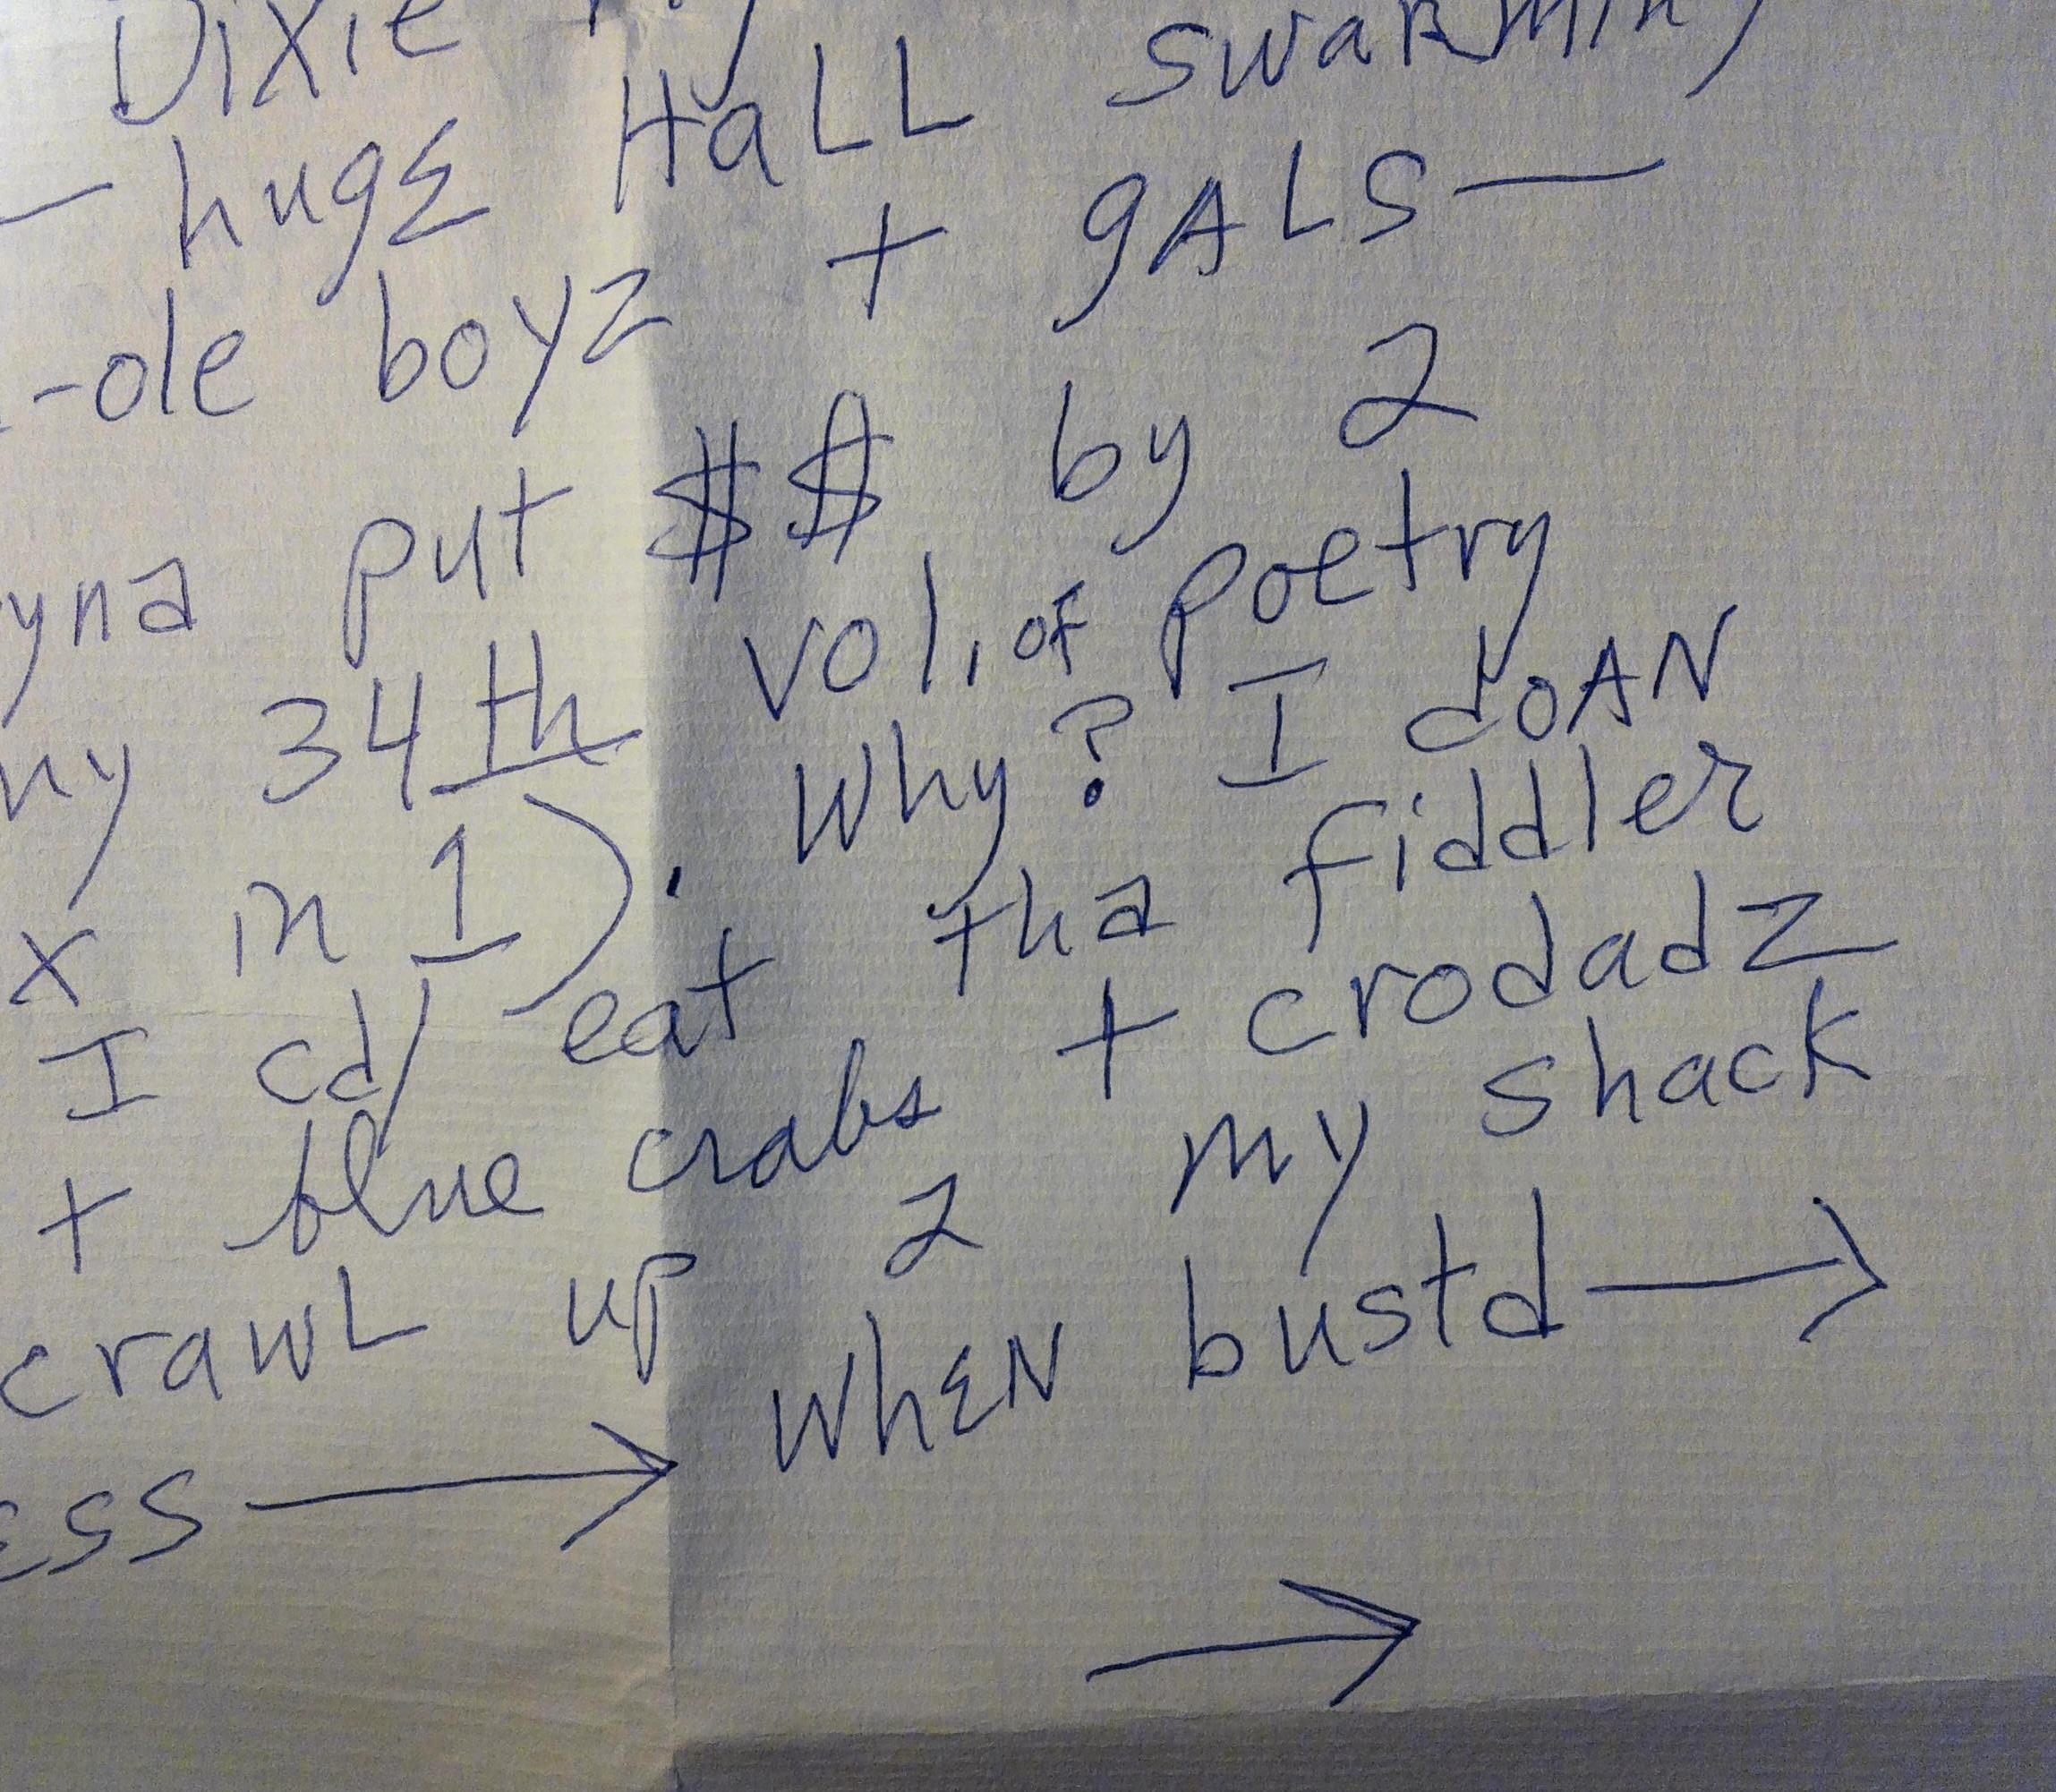 Dixie
— hugE HaLL swaRming
-ole boyz + gALS—
yna put $$ by 2
34th vol. of poetry
x in 1). Why? I doAN
I cd/ eat tha fiddler
+ blue crabs + crodadz
crawL up 2 my shack
ESS → whEN bustd →
→